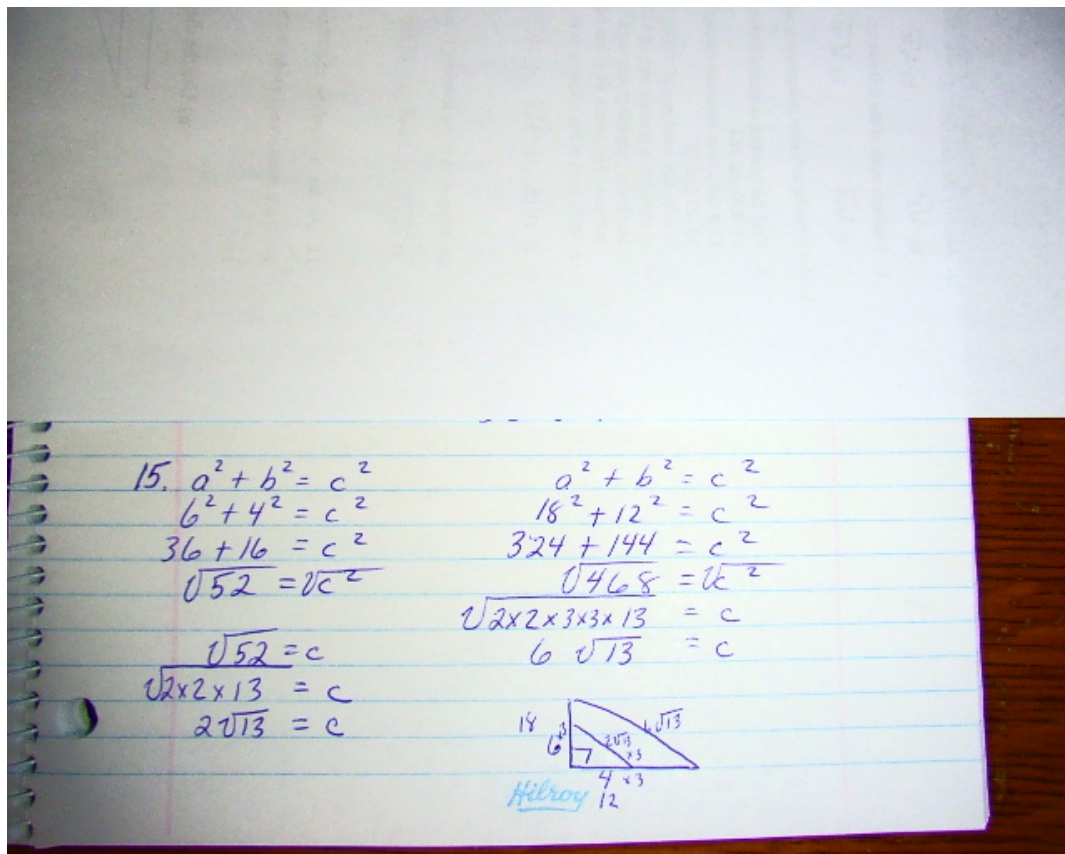 15. a² + b² = c²
6² + 4² = c²
36 + 16 = c²
√52 = √c²
√52 = c
√2×2×13 = c
2√13 = c
a² + b² = c²
18² + 12² = c²
324 + 144 = c²
√468 = √c²
√2×2×3×3×13 = c
6 √13 = c
18
6
2√13
×3
6√13
4 ×3
12
Hilroy